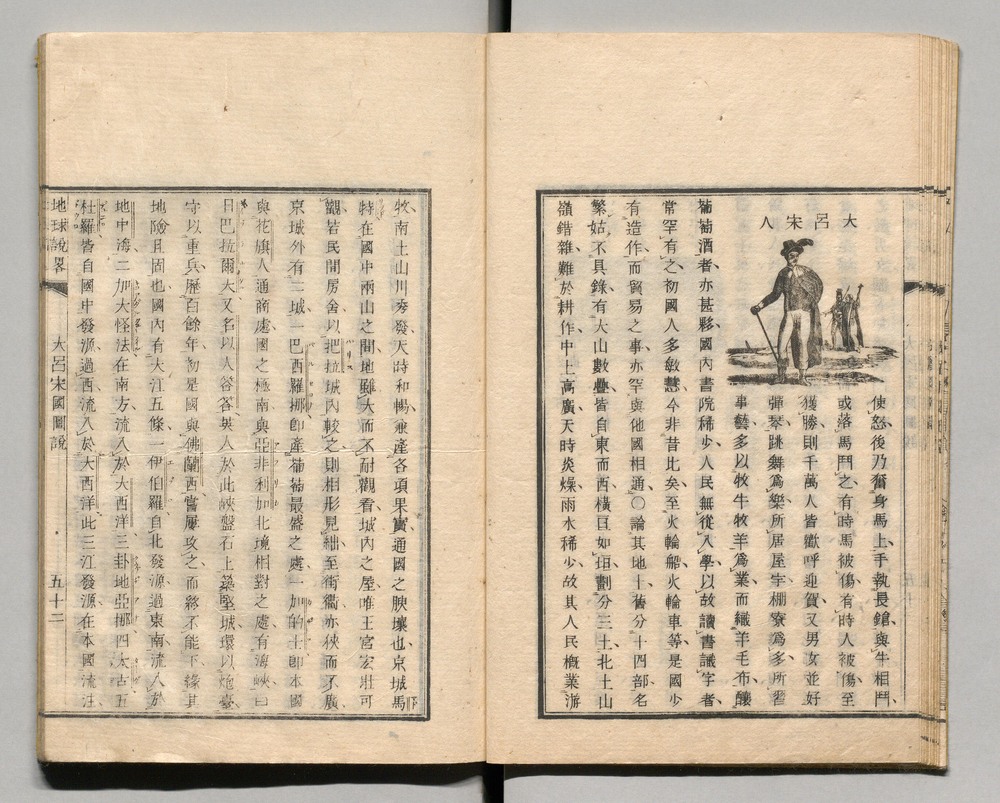 大呂宋人
使怒後乃奮身馬上手執長鎗與牛相鬥
或落馬鬥之有時馬被傷有時人被傷至
獲勝則千萬人皆歡呼迎賀又男女並好
彈琴跳舞為樂所居屋宇棚寮為多所習
事藝多以牧牛牧羊為業而織羊毛布釀
葡萄酒者亦甚夥國內書院稀少人民無從入學以故讀書識字者
常罕有之初國人多敏慧今非昔比矣至火輪船火輪車等是國少
有造作而貿易之事亦罕與他國相通〇論其地土舊分十四部名
繁姑不具錄有大山數疊皆自東而西橫亘如垣劃分三土北土山
嶺錯雜難於耕作中土高廣天時炎燥雨水稀少故其人民概業游
牧南土山川秀發天時和暢兼產各項果實通國之腴壤也京城馬
特在國中兩山之間地雖大而不耐觀看城內之屋唯王宮宏壯可
觀若民間房舍以把拉城內較之則相形見絀至街衢亦狹而不廣
京城外有二城一巴西羅挪即產葡萄最盛之處一加的士即本國
與花旗人通商處國之極南與亞非利加北境相對之處有海峽曰
日巴拉爾大又名以人答答英人於此峽盤石上築堅城環以炮臺
守以重兵歷百餘年初是國與佛蘭西嘗屢攻之而終不能下緣其
地險且固也國內有大江五條一伊伯羅自北發源過東南流入於
地中海二加大怪法在南方流入於大西洋三卦地亞挪四太古五
杜羅皆自國中發源過西流入於大西洋此三江發源在本國流注
地球說畧
大呂宋國圖說
五十二